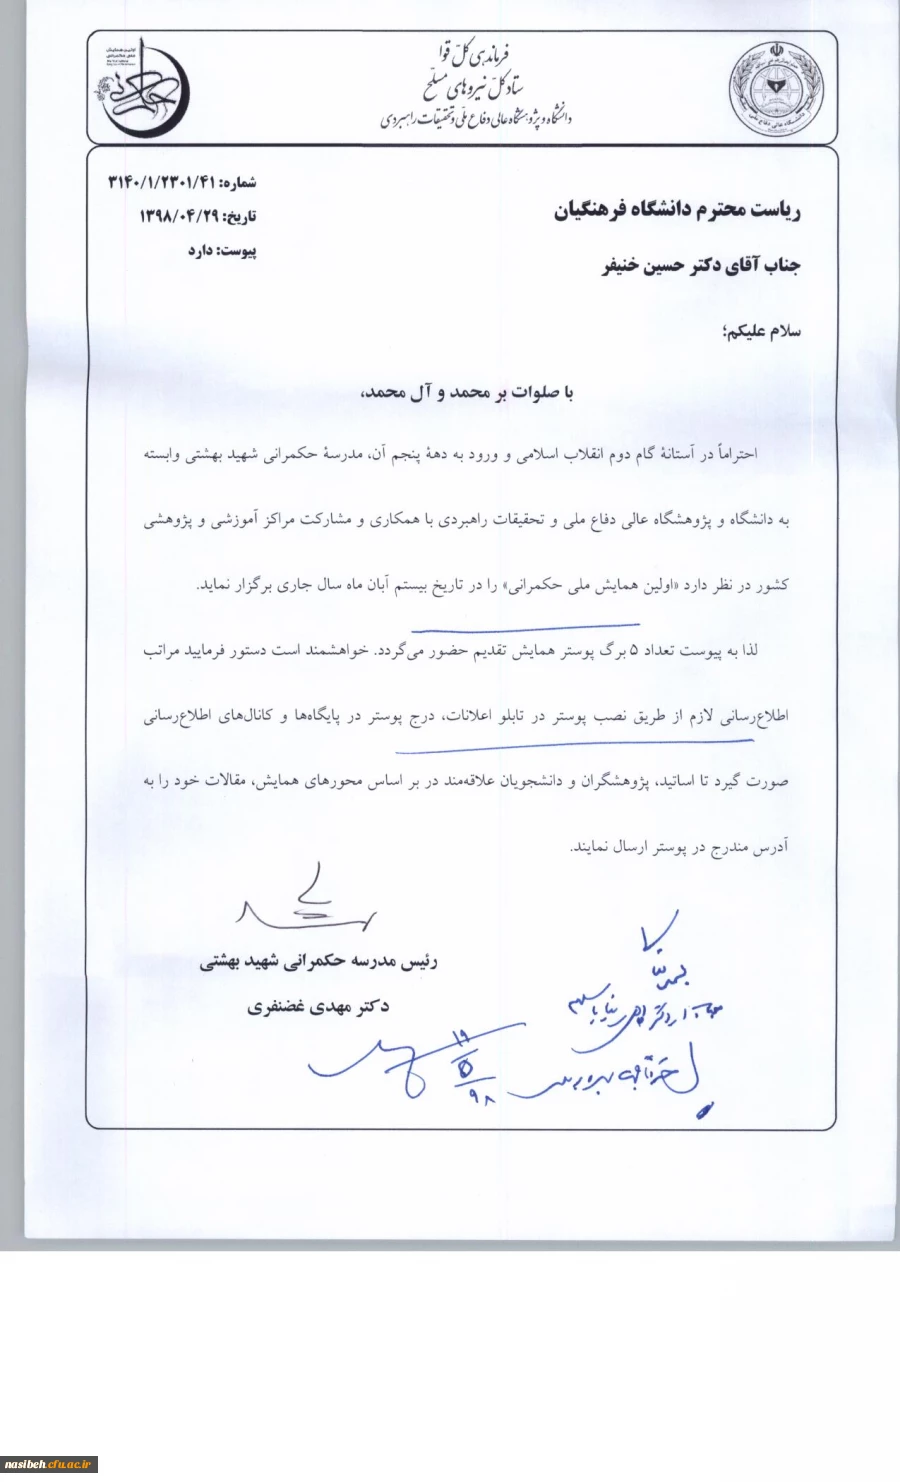 فرماندهی کل قوا
ستاد کل نیروهای مسلّح
دانشگاه و پژوهشگاه عالی دفاع ملّی و تحقیقات راهبردی
شماره: ۳۱۴۰/۱/۲۳۰۱/۴۱
تاریخ: ۱۳۹۸/۰۴/۲۹
پیوست: دارد
ریاست محترم دانشگاه فرهنگیان
جناب آقای دکتر حسین خنیفر
سلام علیکم؛
با صلوات بر محمد و آل محمد،
احتراماً در آستانهٔ گام دوم انقلاب اسلامی و ورود به دههٔ پنجم آن، مدرسهٔ حکمرانی شهید بهشتی وابسته
به دانشگاه و پژوهشگاه عالی دفاع ملی و تحقیقات راهبردی با همکاری و مشارکت مراکز آموزشی و پژوهشی
کشور در نظر دارد «اولین همایش ملی حکمرانی» را در تاریخ بیستم آبان ماه سال جاری برگزار نماید.
لذا به پیوست تعداد ۵ برگ پوستر همایش تقدیم حضور می‌گردد. خواهشمند است دستور فرمایید مراتب
اطلاع‌رسانی لازم از طریق نصب پوستر در تابلو اعلانات، درج پوستر در پایگاه‌ها و کانال‌های اطلاع‌رسانی
صورت گیرد تا اساتید، پژوهشگران و دانشجویان علاقه‌مند در بر اساس محورهای همایش، مقالات خود را به
آدرس مندرج در پوستر ارسال نمایند.
رئیس مدرسه حکمرانی شهید بهشتی
دکتر مهدی غضنفری
۱۹
۵
۹۸
nasibeh.cfu.ac.ir